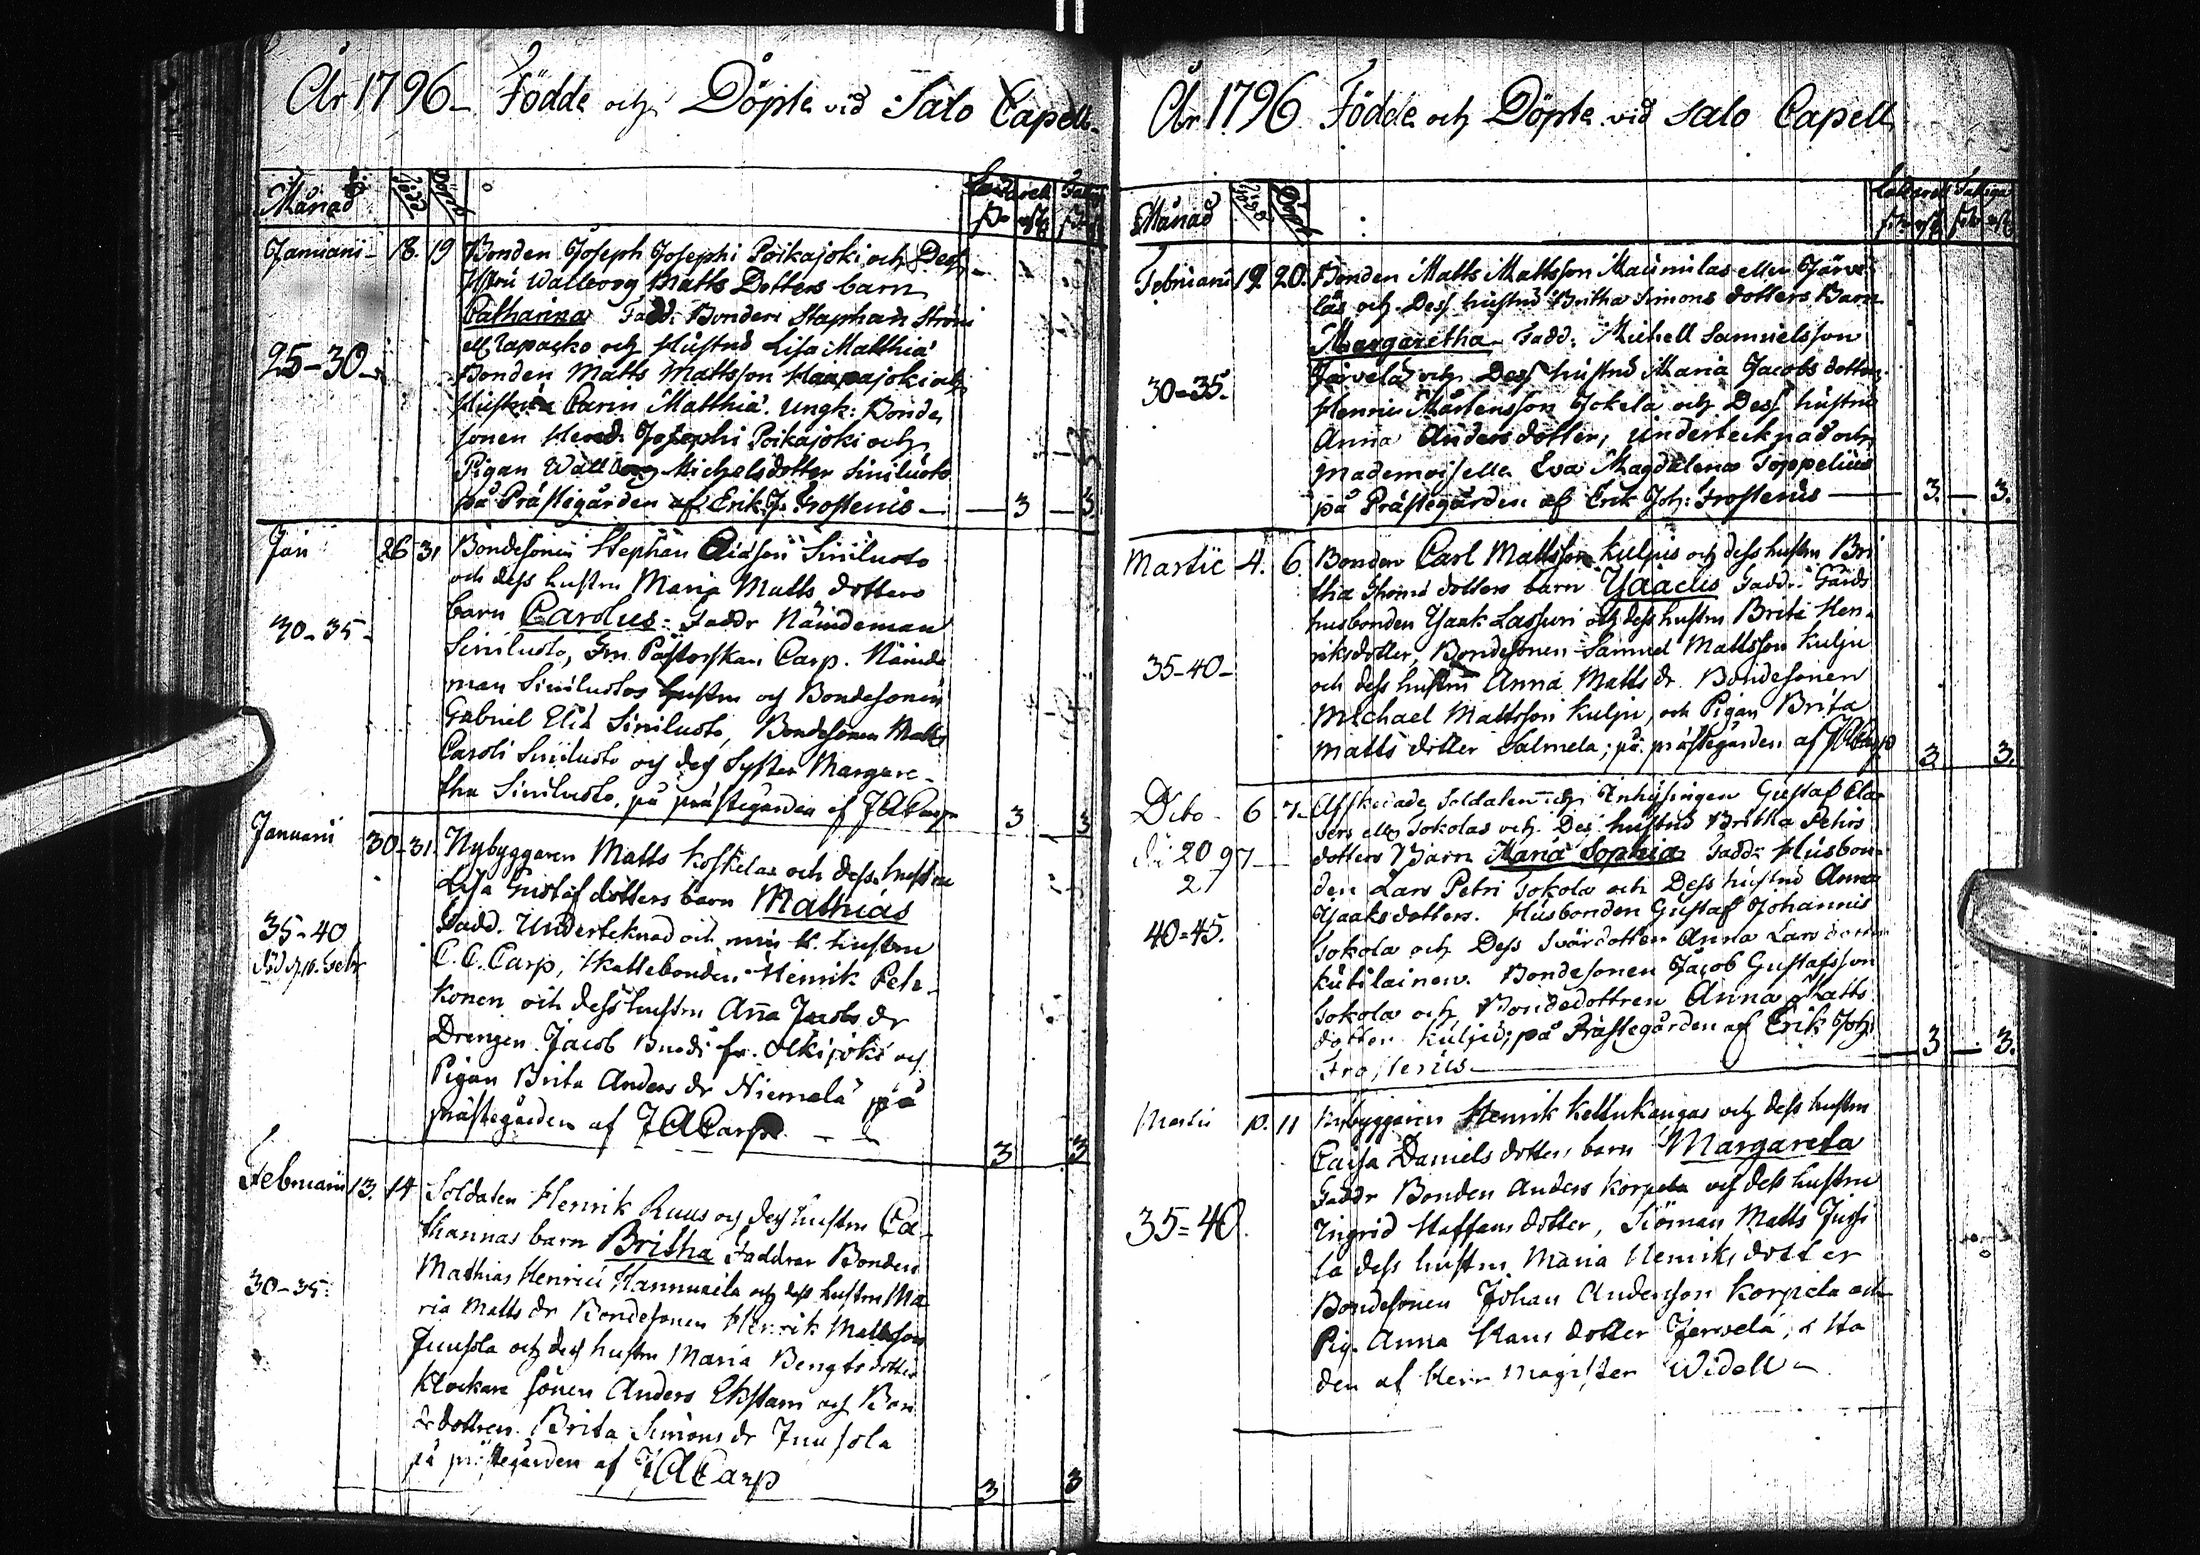 År 1796 – Födde och Döpte vid Salo Capell
Månad Född Döpt
Januarii – 18. 19 Bonden Joseph Josephi Poikajoki och Dess
Hustru Wallborg Matts Dotters barn
Catharina Fadd: Bonden Staphan
och Hustru Lisa Matthiæ
25–30 Bonden Matts Mattsson Haapajoki och
Hustru Carin Matthiæ. Ungk: Bonde
sonen Josephi Poikajoki och
Pigan Wallborg Michelsdotter Siniluoto
på Prästegården af Erik J. Frostenis – 3 – 3.
Jan 26 31 Bondesonen Stephan Siniluoto
och dess hustru Maria Matts dotters
30–35 – barn Carolus: Faddr Nämdeman
Siniluoto, Fru Pastorskan Carp. Nämde
man Siniluotos hustru och Bondesonen
Gabriel Siniluoto, Bondesonen Matts
Caroli Siniluoto och dess Syster Margare-
tha Siniluoto, på prästegården af JACarp 3 3
Januarii 30–31. Nybyggaren Matts Koskelas och dess hustru
Lisa Gustafdotters barn Mathias
35–40 Fadd. Underteknad och min k. hustru
C. C. Carp, Skattebonden Henrik Pel-
konen och dess hustru Anna Jacobs dr
Drengen Jacob Olkijoki och
Pigan Brita Anders dr Niemelä på
prästegården af JACarp. – – 3 3
Februarii 13. 14 Soldaten Henrik Ruus och dess hustru Ca
tharinas barn Britha Faddrar Bonden
30–35. Mathias Henrici Hannuxela och dess hustru Ma
ria Matts dr Bondesonen Henrik Mattsson
Juusola och dess hustru Maria Bengts dotter
Klockare sonen Anders Ekstam och Bon
de dottren Brita Simons dr Juusola
på prästegården af JACarp 3 3
År 1796. Födde och Döpte vid Salo Capell
Månad Född Döpt
Februarii 19. 20. Bonden Matts Mattsson eller Järve
läs och Dess hustru Britha Simons dotters Barn
Margaretha Fadd: Michell Samuelsson
Järvelä och Dess hustru Maria Jacobs dotter,
30–35. Henric Mårtensson Jokela och Dess hustru
Anna Anders dotter, undertecknad och
Mademoiselle Eva Magdalena Toppelius
på Prästegården af Erik Joh: Frostenis – 3. – 3.
Martii 4. 6. Bonden Carl Mattsson Kuljus och dess hustru Bri
tha dotters barn Isaacus Fadd: Gårds
husbonden Isaak Lassuri och dess hustru Brita Hen-
riksdotter, Bondesonen Samuel Mattsson Kulju
35–40 – och dess hustru Anna Matts dr. Bondesonen
Michael Mattsson Kulju, och Pigan Brita
Matts dotter Salmela; på prästegården af JACarp 3 3.
Dito 6 7. Afskedade Soldaten och Inhysingen Gustaf
Sokolas och Dess hustru Britha Pehrs
dotters Barn Maria Sophia Fadd: Husbon-
den Lars Petri Sokola och Dess hustru Anna
Isaaks dotter. Husbonden Gustaf Johannis
40=45. Sokola och Dess Svärdotter Anna Lars dotter
Bondesonen Jacob Gustafsson
Sokola och Bondedottren Anna Matts
dotter Kulju; på Prästegården af Erik Joh:
Frostenis – 3 – 3.
Martii 10. 11 Nybyggaren Henrik Kellukangas och dess hustru
Caisa Daniels dotters barn Margareta
Faddr Bonden Anders Korpela och dess hustru
35=40. Ingrid Staffans dotter, Sjöman Matts
la dess hustru Maria Henriks dotter
Bondesonen Johan Andersson Korpela och
Pig. Anna Hans dotter Jervelä, i Sta
den af Herr Magister Widell –